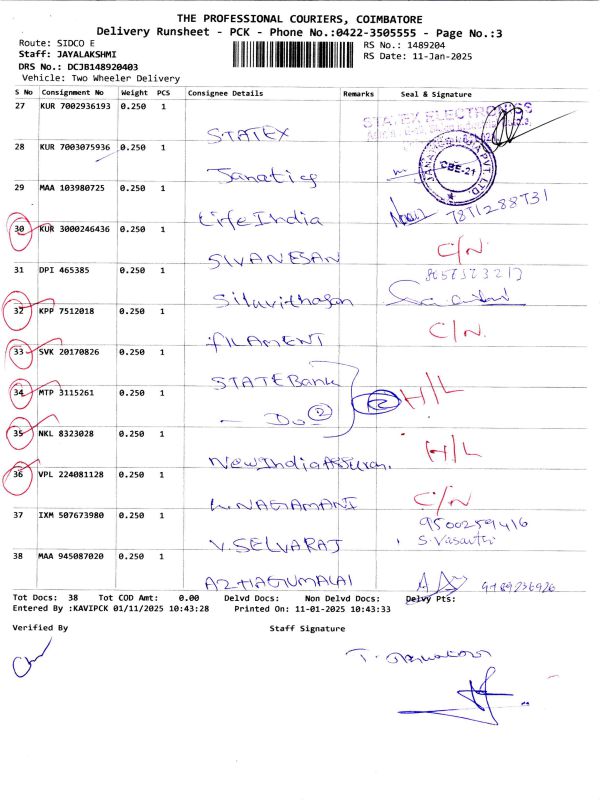 THE PROFESSIONAL COURIERS, COIMBATORE
Delivery Runsheet - PCK - Phone No.:0422-3505555 - Page No.:3
Route: SIDCO E
RS No.: 1489204
Staff: JAYALAKSHMI
RS Date: 11-Jan-2025
DRS No.: DCJB148920403
Vehicle: Two Wheeler Delivery
S No Consignment No Weight PCS Consignee Details Remarks Seal & Signature
27 KUR 7002936193 0.250 1 STATEX STATEX ELECTRONICS
28 KUR 7003075936 0.250 1 Janatics CBE-21
29 MAA 103980725 0.250 1 Life India
30 KUR 3000246436 0.250 1 SIVANESAN C/N
31 DPI 465385 0.250 1
32 KPP 7512018 0.250 1 FILAMENT C/N
33 SVK 20170826 0.250 1 STATE Bank
34 MTP 3115261 0.250 1 - Do - 2 2 H/L
35 NKL 8323028 0.250 1 New India Assuran. H/L
36 VPL 224081128 0.250 1 NAGAMANI C/N
37 IXM 507673980 0.250 1 V. SELVARAJ 9500259416
S. Vasanthi
38 MAA 945087020 0.250 1 AZHAGUMALAI
Tot Docs: 38 Tot COD Amt: 0.00 Delvd Docs: Non Delvd Docs: Delvy Pts:
Entered By :KAVIPCK 01/11/2025 10:43:28 Printed On: 11-01-2025 10:43:33
Verified By Staff Signature